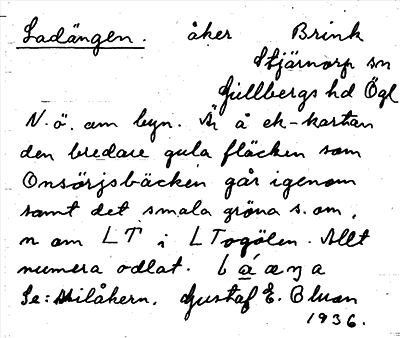 Ladängen. åker Brink
Stjärnorp sn
Gullbergs hd Ögl
N.ö. om byn. Är å ek-kartan
den bredare gula fläcken som
Onsörjsbäcken går igenom
samt det smala gröna s. om,
n om LT i LTogölen. Allt
numera odlat.
Se: Milåkern. Gustaf E. Bluan
1936.